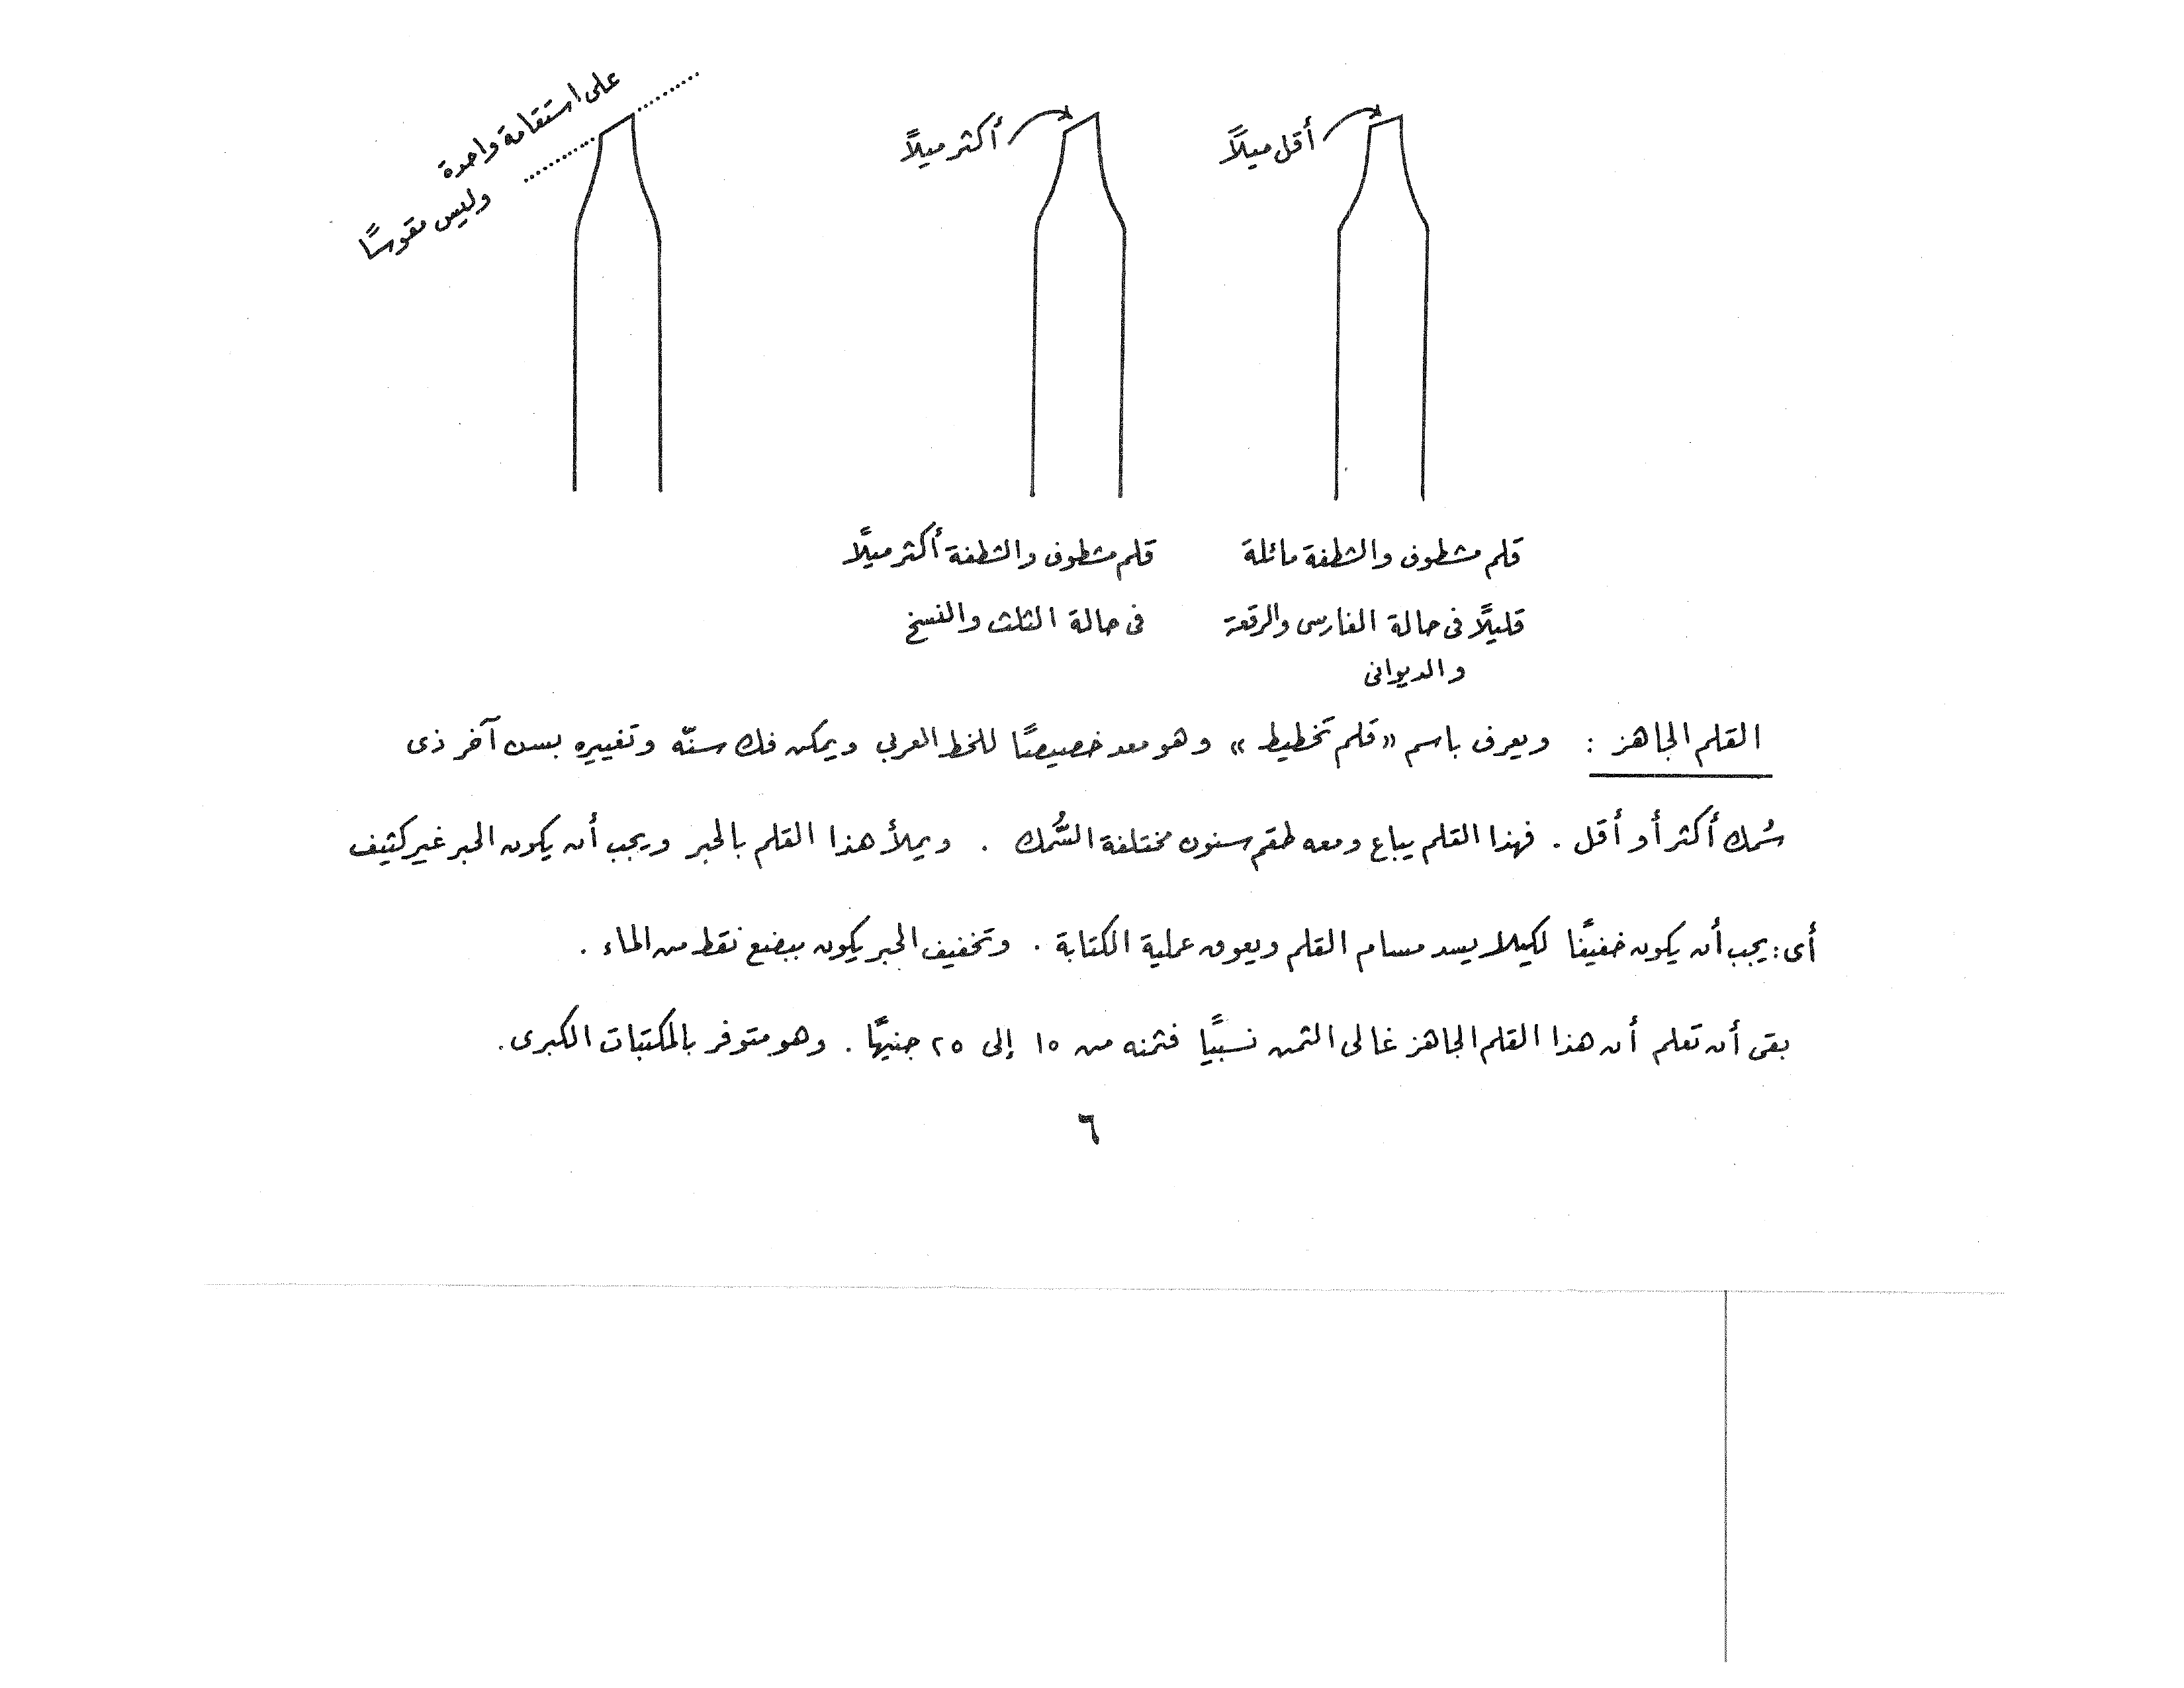 أقل ميلاً
أكثر ميلاً
على استقامة واحدة
وليس مقوسًا
قلم مشطوف والشطفة مائلة
قليلاً فى حالة الفارسى والرقعة
والديوانى
قلم مشطوف والشطفة أكثر ميلاً
فى حالة الثلث والنسخ
القلم الجاهز : ويعرف باسم «قلم تخطيط» وهو معد خصيصًا للخط العربى ويمكن فك سنّه وتغييره بسن آخر ذى
سُمك أكثر أو أقل . فهذا القلم يباع ومعه طقم سنون مختلفة السُّمك . ويملأ هذا القلم بالحبر ويجب أن يكون الحبر غير كثيف
أى : يجب أن يكون خفيفًا لكيلا يسد مسام القلم ويعوق عملية الكتابة . وتخفيف الحبر يكون ببضع نقط من الماء .
بقى أن تعلم أن هذا القلم الجاهز غالى الثمن نسبيًا فثمنه من ١٥ إلى ٢٥ جنيهًا . وهو متوفر بالمكتبات الكبرى .
٦